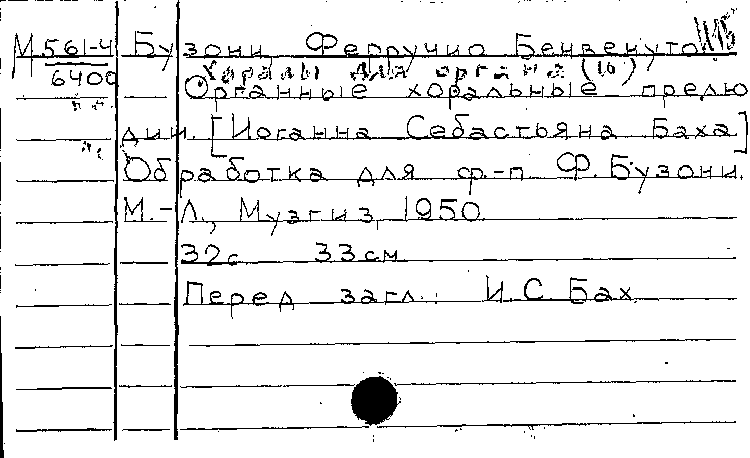 М 561-4 Бузони Ферручио Бенвенуто
6400 Хоралы для органа (10)
Органные хоральные прелю
дии. [Иоганна Себастьяна Баха]
Обработка для ф.-п Ф. Бузони.
М.-Л., Музгиз, 1950.
32с 33см
Перед загл.: И.С. Бах